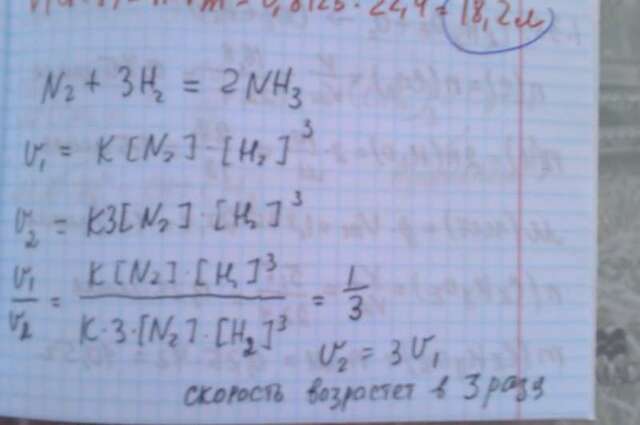 = 0,8125 · 22,4 = 18,2л
N₂ + 3H₂ = 2NH₃
v₁ = K[N₂]·[H₂]³
v₂ = K3[N₂]·[H₂]³
v₁/v₂ = K[N₂]·[H₂]³ / K·3·[N₂]·[H₂]³ = 1/3
v₂ = 3v₁
скорость возрастет в 3 раза